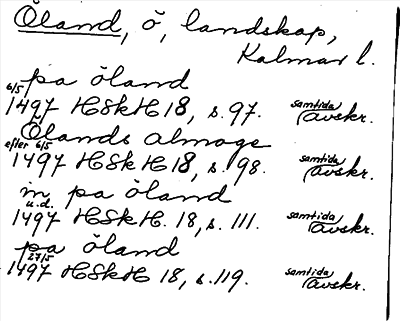 Öland, ö, landskap,
Kalmar l.
på öland
6/5 1497 HSkH 18, s. 97. samtida avskr.
Ölands almoge
efter 6/5 1497 HSkH 18, s. 98. samtida avskr.
in på öland
u.d. 1497 HSkH. 18, s. 111. samtida avskr.
på öland
27/5 1497 HSkH 18, s. 119. samtida avskr.